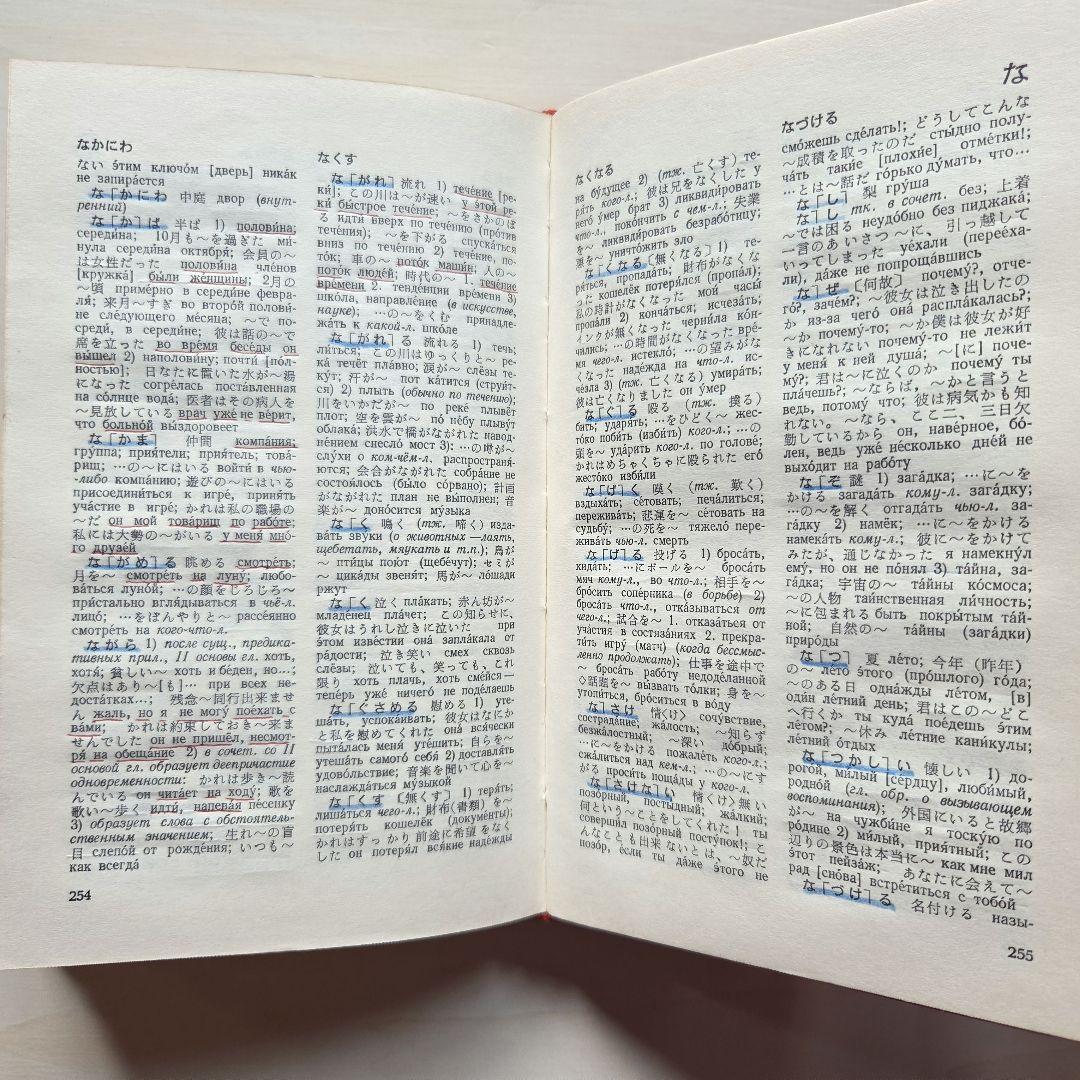 なかにわ
ない э́тим ключо́м [дверь] ника́к
не запира́ется
な「かにわ 中庭 двор (внут-
ренний)
な「か」ば 半ば 1) полови́на;
середи́на; 10月も～を過ぎた ми-
ну́ла середи́на октября́; 会員の～
は女性だった полови́на чле́нов
[кружка́] бы́ли же́нщины; 2月の
～頃 приме́рно в середи́не февра-
ля́; 来月～すぎ во второ́й полови́-
не сле́дующего ме́сяца; ～で по-
среди́, в середи́не; 彼は話の～で
席を立った во вре́мя бесе́ды он
вы́шел 2) наполови́ну; почти́ [по́л-
ностью]; 日なたに置いた水が～湯
になった согре́лась поста́вленная
на со́лнце вода́; 医者はその病人を
～見放している врач уже́ не ве́рит,
что больно́й вы́здоровеет
な「かま」 仲間 компа́ния;
гру́ппа; прия́тели; прия́тель; това́-
рищ; …の～にはいる войти́ в чью-
-либо компа́нию; 遊びの～にはいる
присоедини́ться к игре́, приня́ть
уча́стие в игре́; かれは私の職場の
～だ он мой това́рищ по рабо́те;
私には大勢の～がいる у меня́ мно́-
го друзе́й
な「がめ」る 眺める смотре́ть;
月を～ смотре́ть на луну́; любо-
ва́ться луно́й; …の顔をじろじろ～
при́стально вгля́дываться в чьё-л.
лицо́; …をぼんやりと～ рассе́янно
смотре́ть на кого-что-л.
ながら 1) после сущ., предика-
тивных прил., II основы гл. хоть,
хотя́; 貧しい～ хоть и бе́ден, но…;
欠点はあり～[も]… при всех не-
доста́тках…; 残念～同行出来ませ
ん жаль, но я не могу́ пое́хать с
ва́ми; かれは約束しておき～来ま
せんでした он не пришёл, несмот-
ря́ на обеща́ние 2) в сочет. со II
основой гл. образует деепричастие
одновременности: かれは歩き～読
んでいる он чита́ет на ходу́; 歌を
歌い～歩く идти́, напева́я пе́сенку
3) образует слова с обстоятель-
ственным значением; 生れ～の盲
目 слепо́й от рожде́ния; いつも～
как всегда́
254
なくす
な「がれ」 流れ 1) тече́ние [ре-
ки́]; この川は～が速い у э́той ре-
ки́ бы́строе тече́ние; ～をさかのぼ
る идти́ вверх по тече́нию (про́тив
тече́ния); ～を下がる спуска́ться
вниз по тече́нию 2) тече́ние, по-
то́к; 車の～ пото́к маши́н; 人の～
пото́к люде́й; 時代の～ 1. тече́ние
вре́мени 2. тенде́нции вре́мени 3)
шко́ла, направле́ние (в искусстве,
науке); …の～をくむ принадле-
жа́ть к какой-л. шко́ле
な「がれ」る 流れる 1) течь;
ли́ться; この川はゆっくりと～ ре-
ка́ течёт пла́вно; 涙が～ слёзы те-
ку́т; 汗が～ пот ка́тится (струи́т-
ся) 2) плыть (обычно по течению);
川をいかだが～ по реке́ плывёт
плот; 空を雲が～ по́ небу плыву́т
облака́; 洪水で橋がながれた навод-
не́нием снесло́ мост 3): …の噂が～
слу́хи о ком-чём-л. распространя́-
ются; 会合がながれた собра́ние не
состоя́лось (бы́ло со́рвано); 計画
がながれた план не вы́полнен; 音
楽が～ доно́сится му́зыка
な「く 鳴く (тж. 啼く) изда-
ва́ть зву́ки (о животных —лаять,
щебетать, мяукать и т.п.); 鳥が
～ пти́цы пою́т (щебе́чут); セミが
～ цика́ды звеня́т; 馬が～ ло́шади
ржут
な「く 泣く пла́кать; 赤ん坊が～
младе́нец пла́чет; この知らせに、
彼女はうれし泣きに泣いた при
э́том изве́стии она́ запла́кала от
ра́дости; 泣き笑い смех сквозь
слёзы; 泣いても、笑っても、これ
限り хоть плачь, хоть сме́йся—
тепе́рь уже́ ничего́ не поде́лаешь
な「ぐさめる 慰める 1) уте-
ша́ть, успока́ивать; 彼女はなにか
と私を慰めてくれた она́ вся́чески
пыта́лась меня́ уте́шить; 自らを～
утеша́ть самого́ себя́ 2) доставля́ть
удово́льствие; 音楽を聞いて心を～
наслажда́ться му́зыкой
な「くす 〔無くす〕 1) теря́ть;
лиша́ться чего-л.; 財布(書類)を～
потеря́ть кошелёк (докуме́нты);
かれはすっかり前途に希望をなく
した он потеря́л вся́кие наде́жды
なくなる
бу́дущее 2) (тж. 亡くす) те-
ря́ть кого-л.; 彼は兄をなくした у
него́ у́мер брат 3) ликвиди́ровать
что-л., поко́нчить с чем-л.; 失業
を～ ликвиди́ровать безрабо́тицу;
悪を～ уничто́жить зло
な「くなる〔無くなる〕 1) те-
ря́ться, пропада́ть; 財布がなくな
った кошелёк потеря́лся (пропа́л);
私の時計がなくなった мои́ часы́
пропа́ли 2) конча́ться; исчеза́ть;
インクが無くなった черни́ла ко́н-
чились; …の時間がなくなった вре́-
мя чего-л. истекло́; …の望みがな
くなった наде́жда на что-л. ис-
че́зла 3) (тж. 亡くなる) умира́ть;
彼は亡くなりました он у́мер
な「ぐ」る 殴る (тж. 撲る)
бить, ударя́ть; …をひどく～ жес-
то́ко поби́ть (изби́ть) кого-л.; …の
頭を～ уда́рить кого-л. по голове́;
かれはめちゃくちゃに殴られた его́
жесто́ко изби́ли
な「げ」く 嘆く (тж. 歎く)
вздыха́ть; се́товать, печа́литься;
пережива́ть; 悲運を～ се́товать на
судьбу́; …の死を～ тяжело́ пере-
жива́ть чью-л. смерть
な「げ」る 投げる 1) броса́ть,
кида́ть; …にボールを～ броса́ть
мяч кому-л., во что-л.; 相手を～
бро́сить сопе́рника (в борьбе) 2)
броса́ть что-л., отка́зываться от
чего-л.; 試合を～ 1. отказа́ться от
уча́стия в состяза́ниях 2. прекра-
ти́ть игру́ (матч) (когда бессмыс-
ленно продолжать); 仕事を途中で
～ броса́ть рабо́ту недоде́ланной
◇話題を～ вы́звать то́лки; 身を～
утопи́ться, бро́ситься в во́ду
な「さけ 情け сочу́вствие,
сострада́ние, жа́лость; ～知らず
безжа́лостный; ～深い до́брый;
…に～をかける пожале́ть кого-л.,
сжа́литься над кем-л.; …の～にす
がる проси́ть поща́ды у кого-л.
な「さけな」い 情け無い
позо́рный, посты́дный; жа́лкий;
何という～ことをしてくれた! ты
соверши́л позо́рный посту́пок!; こ
んなことも出来ないとは、～奴だ
позо́р, е́сли ты да́же э́того не
な
なづける
смо́жешь сде́лать!; どうしてこんな
～成績を取ったのだ сты́дно полу-
ча́ть таки́е [плохи́е] отме́тки!;
…とは～話だ го́рько ду́мать, что…
な「し」 梨 гру́ша
な「し」 тк. в сочет. без; 上着
～では困る неудо́бно без пиджака́;
一言のあいさつ～に、引っ越して
いってしまった уе́хали (перее́ха-
ли), да́же не попроща́вшись
な「ぜ 〔何故〕 почему́?, отче-
го́?, заче́м?; ～彼女は泣き出したの
か из-за чего́ она́ распла́калась?;
～か почему́-то; ～か僕は彼女が好
きになれない почему́-то не лежи́т
у меня́ к ней душа́; ～[に] поче-
му́?; 君は～に泣くのか почему́ ты
пла́чешь?; ～ならば, ～かと言うと
ведь, потому́ что; 彼は病気かも知
れない。～なら、ここ二、三日欠
勤しているから он, наве́рное, бо́-
лен, ведь уже́ не́сколько дней не
выхо́дит на рабо́ту
な「ぞ 謎 1) зага́дка; …に～を
かける загада́ть кому-л. зага́дку;
…の～を解く отгада́ть чью-л. за-
га́дку 2) намёк; …に～をかける
намека́ть кому-л.; 彼に～をかけて
みたが、通じなかった я намекну́л
ему́, но он не по́нял 3) та́йна, за-
га́дка; 宇宙の～ та́йны ко́смоса;
～の人物 таи́нственная ли́чность;
～に包まれる быть покры́тым та́й-
ной; 自然の～ та́йны (зага́дки)
приро́ды
な「つ」 夏 ле́то; 今年 (昨年)
の～ ле́то э́того (про́шлого) го́да;
～のある日 одна́жды ле́том, [в]
оди́н ле́тний день; 君はこの～どこ
へ行くか ты куда́ пое́дешь э́тим
ле́том?; ～休み ле́тние кани́кулы;
ле́тний о́тдых
な「つかし」い 懐しい 1) до-
рого́й, ми́лый [се́рдцу], люби́мый,
родно́й (гл. обр. о вызывающем
воспоминания); 外国にいると故郷
が～ на чужби́не я тоску́ю по
ро́дине 2) ми́лый, прия́тный; この
辺りの景色は本当に～ как мне мил
э́тот пейза́ж; あなたに会えて～
рад [сно́ва] встре́титься с тобо́й
な「づけ」る 名付ける назы-
255